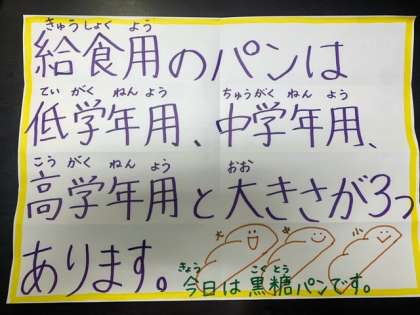 きゅうしょく よう
給食用のパンは
ていがくねんよう ちゅうがくねんよう
低学年用、中学年用、
こうがくねんよう おお
高学年用と大きさが3つ
あります。
大 中 小
きょう こくとう
今日は黒糖パンです。